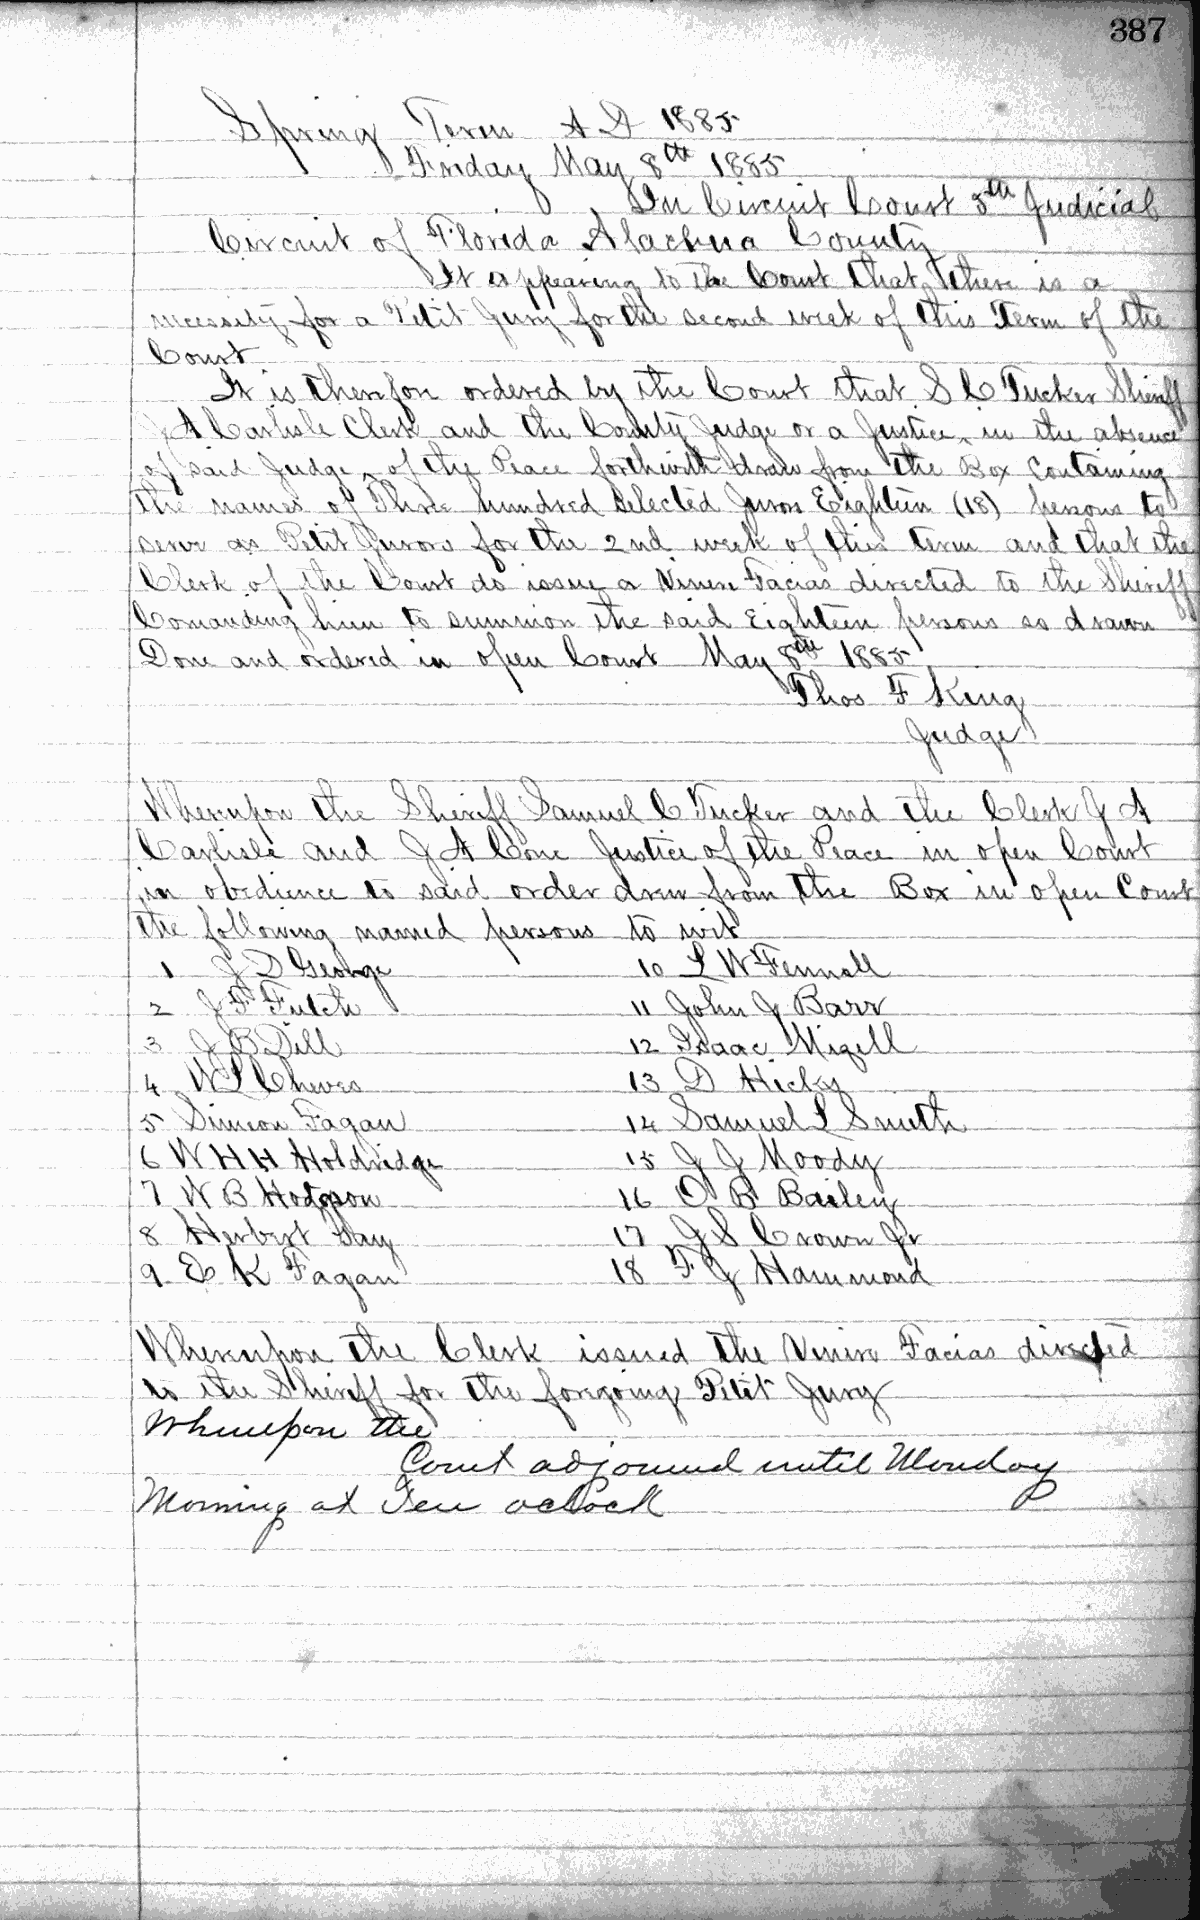 387
Spring Term A D 1885
Friday May 8th 1885
In Circuit Court 5th Judicial
Circuit of Florida Alachua County
It appearing to the Court that there is a
necessity for a Petit Jury for the second week of this Term of the
Court
It is therefore ordered by the Court that S C Tucker Sheriff
J A Carlisle Clerk and the County Judge or a Justice, in the absence
of said Judge, of the Peace forthwith draw from the Box containing
the names of Three hundred selected Jurors Eighteen (18) persons to
serve as Petit Jurors for the 2nd week of this term and that the
Clerk of the Court do issue a Venire Facias directed to the Sheriff
Comanding him to summon the said Eighteen persons so drawn
Done and ordered in open Court May 8th 1885
Thos F King
Judge
Whereupon the Sheriff Samuel C Tucker and the Clerk J A
Carlisle and J A Cone Justice of the Peace in open Court
in obedience to said order drew from the Box in open Court
the following named persons to wit
1 J D George
2 J F Futch
3 J B Dill
4 W L Cheves
5 Simeon Fagan
6 W H H Holdridge
7 W B Hodgson
8 Herbert Gay
9 E K Fagan
10 L W Fennell
11 John J Barr
12 Isaac Mizell
13 D Hicky
14 Samuel L Smith
15 J J Moody
16 O B Bailey
17 J S Crown Jr
18 F J Hammond
Whereupon the Clerk issued the Venire Facias directed
to the Sheriff for the foregoing Petit Jury
Whereupon the
Court adjourned until Monday
Morning at Ten oclock